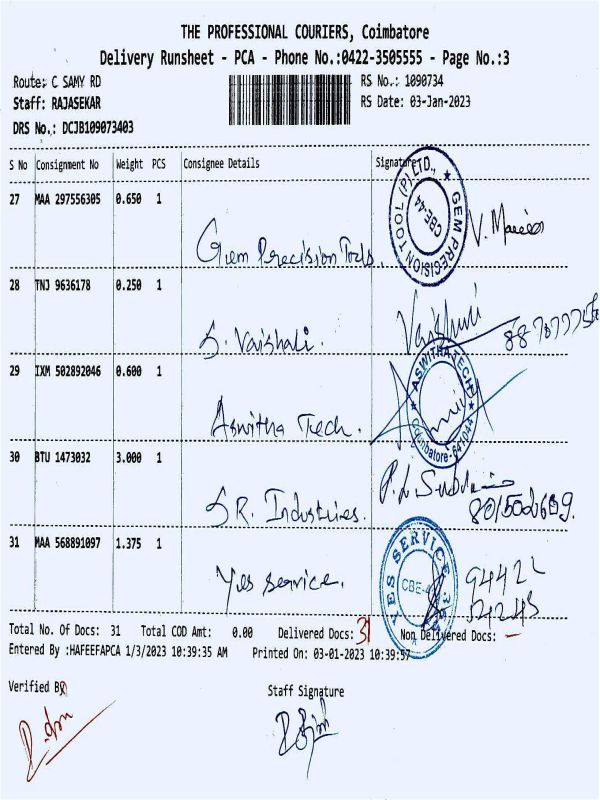 THE PROFESSIONAL COURIERS, Coimbatore
Delivery Runsheet - PCA - Phone No.:0422-3505555 - Page No.:3
Route: C SAMY RD
RS No.: 1090734
Staff: RAJASEKAR
RS Date: 03-Jan-2023
DRS No.: DCJB109073403
S No Consignment No Weight PCS Consignee Details Signature
27 MAA 297556305 0.650 1
Gem Precision Tools.
GEM PRECISION TOOL (P) LTD.,
CBE-44
28 TNJ 9636178 0.250 1
S. Vaishali.
29 IXM 502892046 0.600 1
Aswitha Tech.
ASWITHA TECH
Coimbatore-641044
30 BTU 1473032 3.000 1
S.R. Industries.
31 MAA 568891097 1.375 1
Yes Service.
YES SERVICE
94422
Total No. Of Docs: 31 Total COD Amt: 0.00 Delivered Docs: 31 Non Delivered Docs: -
Entered By :HAFEEFAPCA 1/3/2023 10:39:35 AM Printed On: 03-01-2023 10:39:57
Verified By
Staff Signature